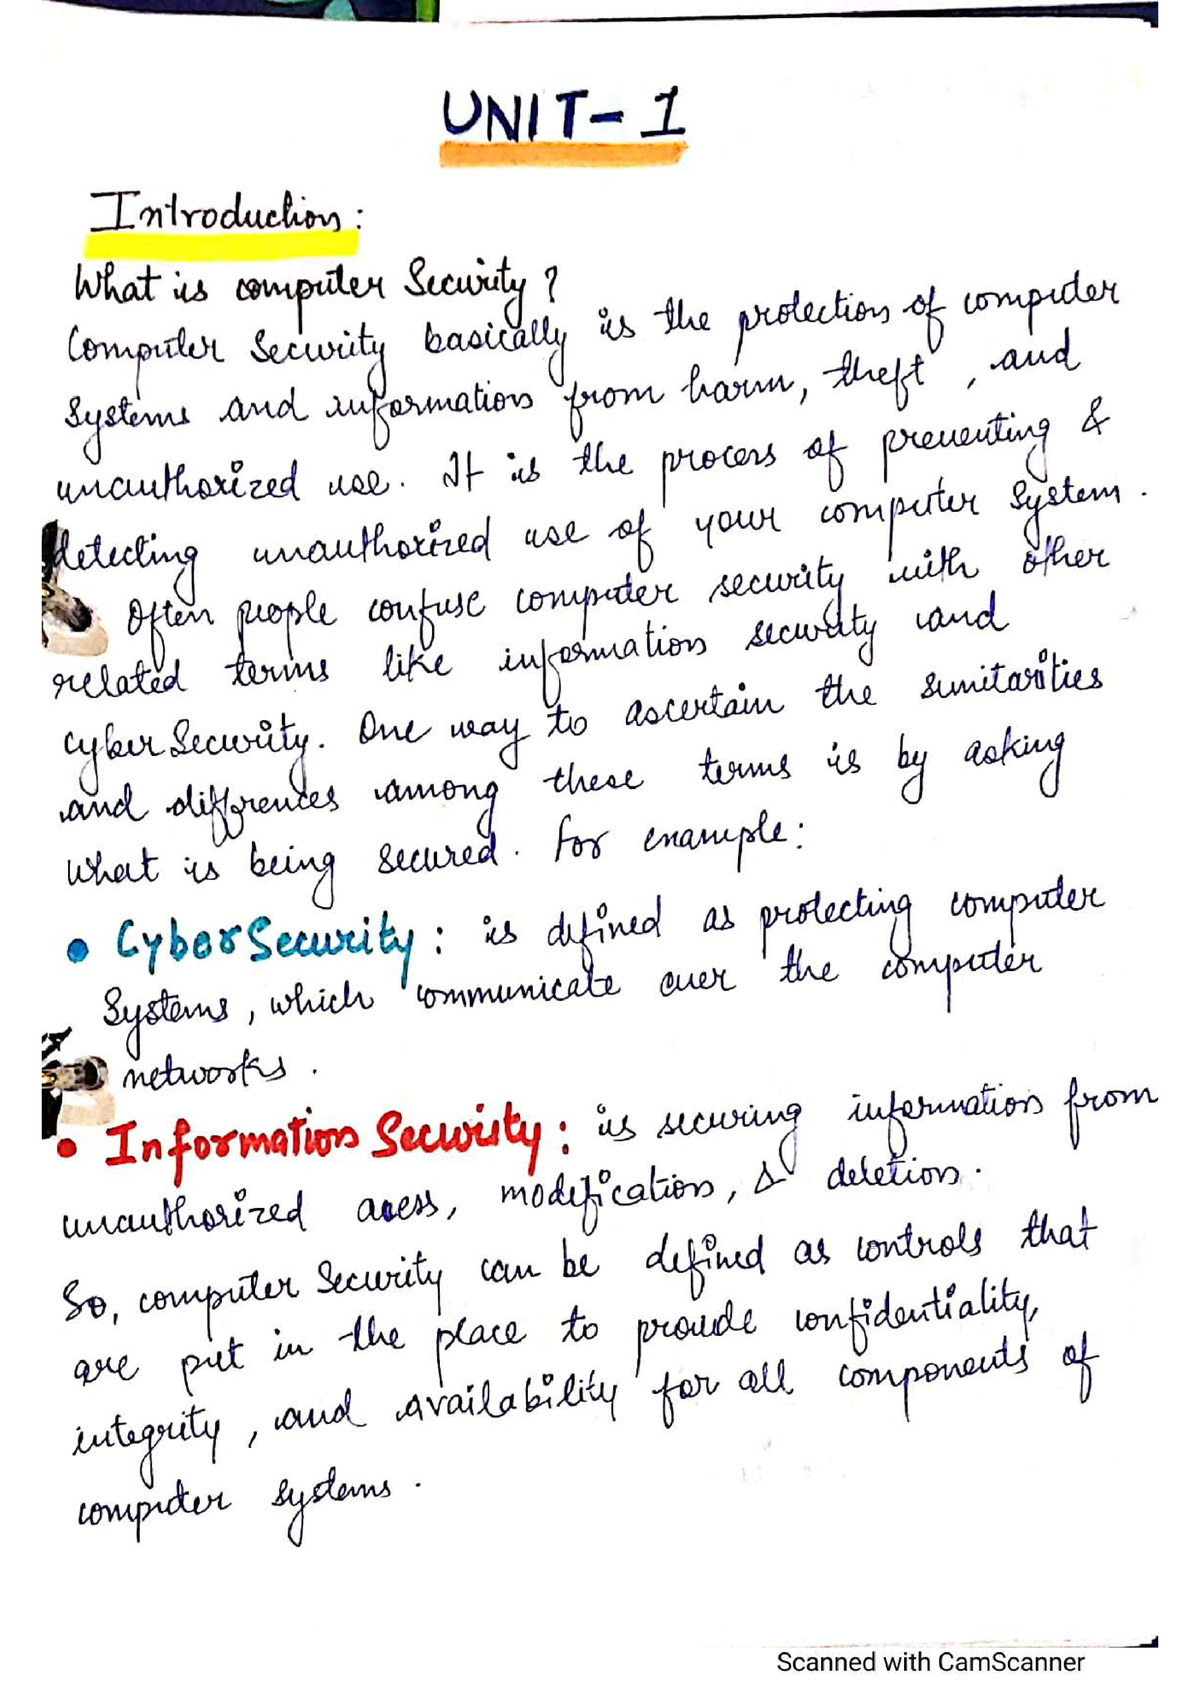 UNIT-1
Introduction:
What is computer Security?
Computer Security basically is the protection of computer
Systems and information from harm, theft, and
unauthorized use. It is the process of preventing &
detecting unauthorized use of your computer system.
Often people confuse computer security with other
related terms like information security and
cyberSecurity. One way to ascertain the simitarities
and differences among these terms is by asking
what is being secured. For example:
• CyberSecurity: is defined as protecting computer
Systems, which communicate over the computer
networks.
• Information Security: is securing information from
unauthorized acess, modification, & deletion.
So, computer Security can be defined as controls that
are put in the place to provide confidentiality,
integrity, and availability for all components of
computer systems.
Scanned with CamScanner